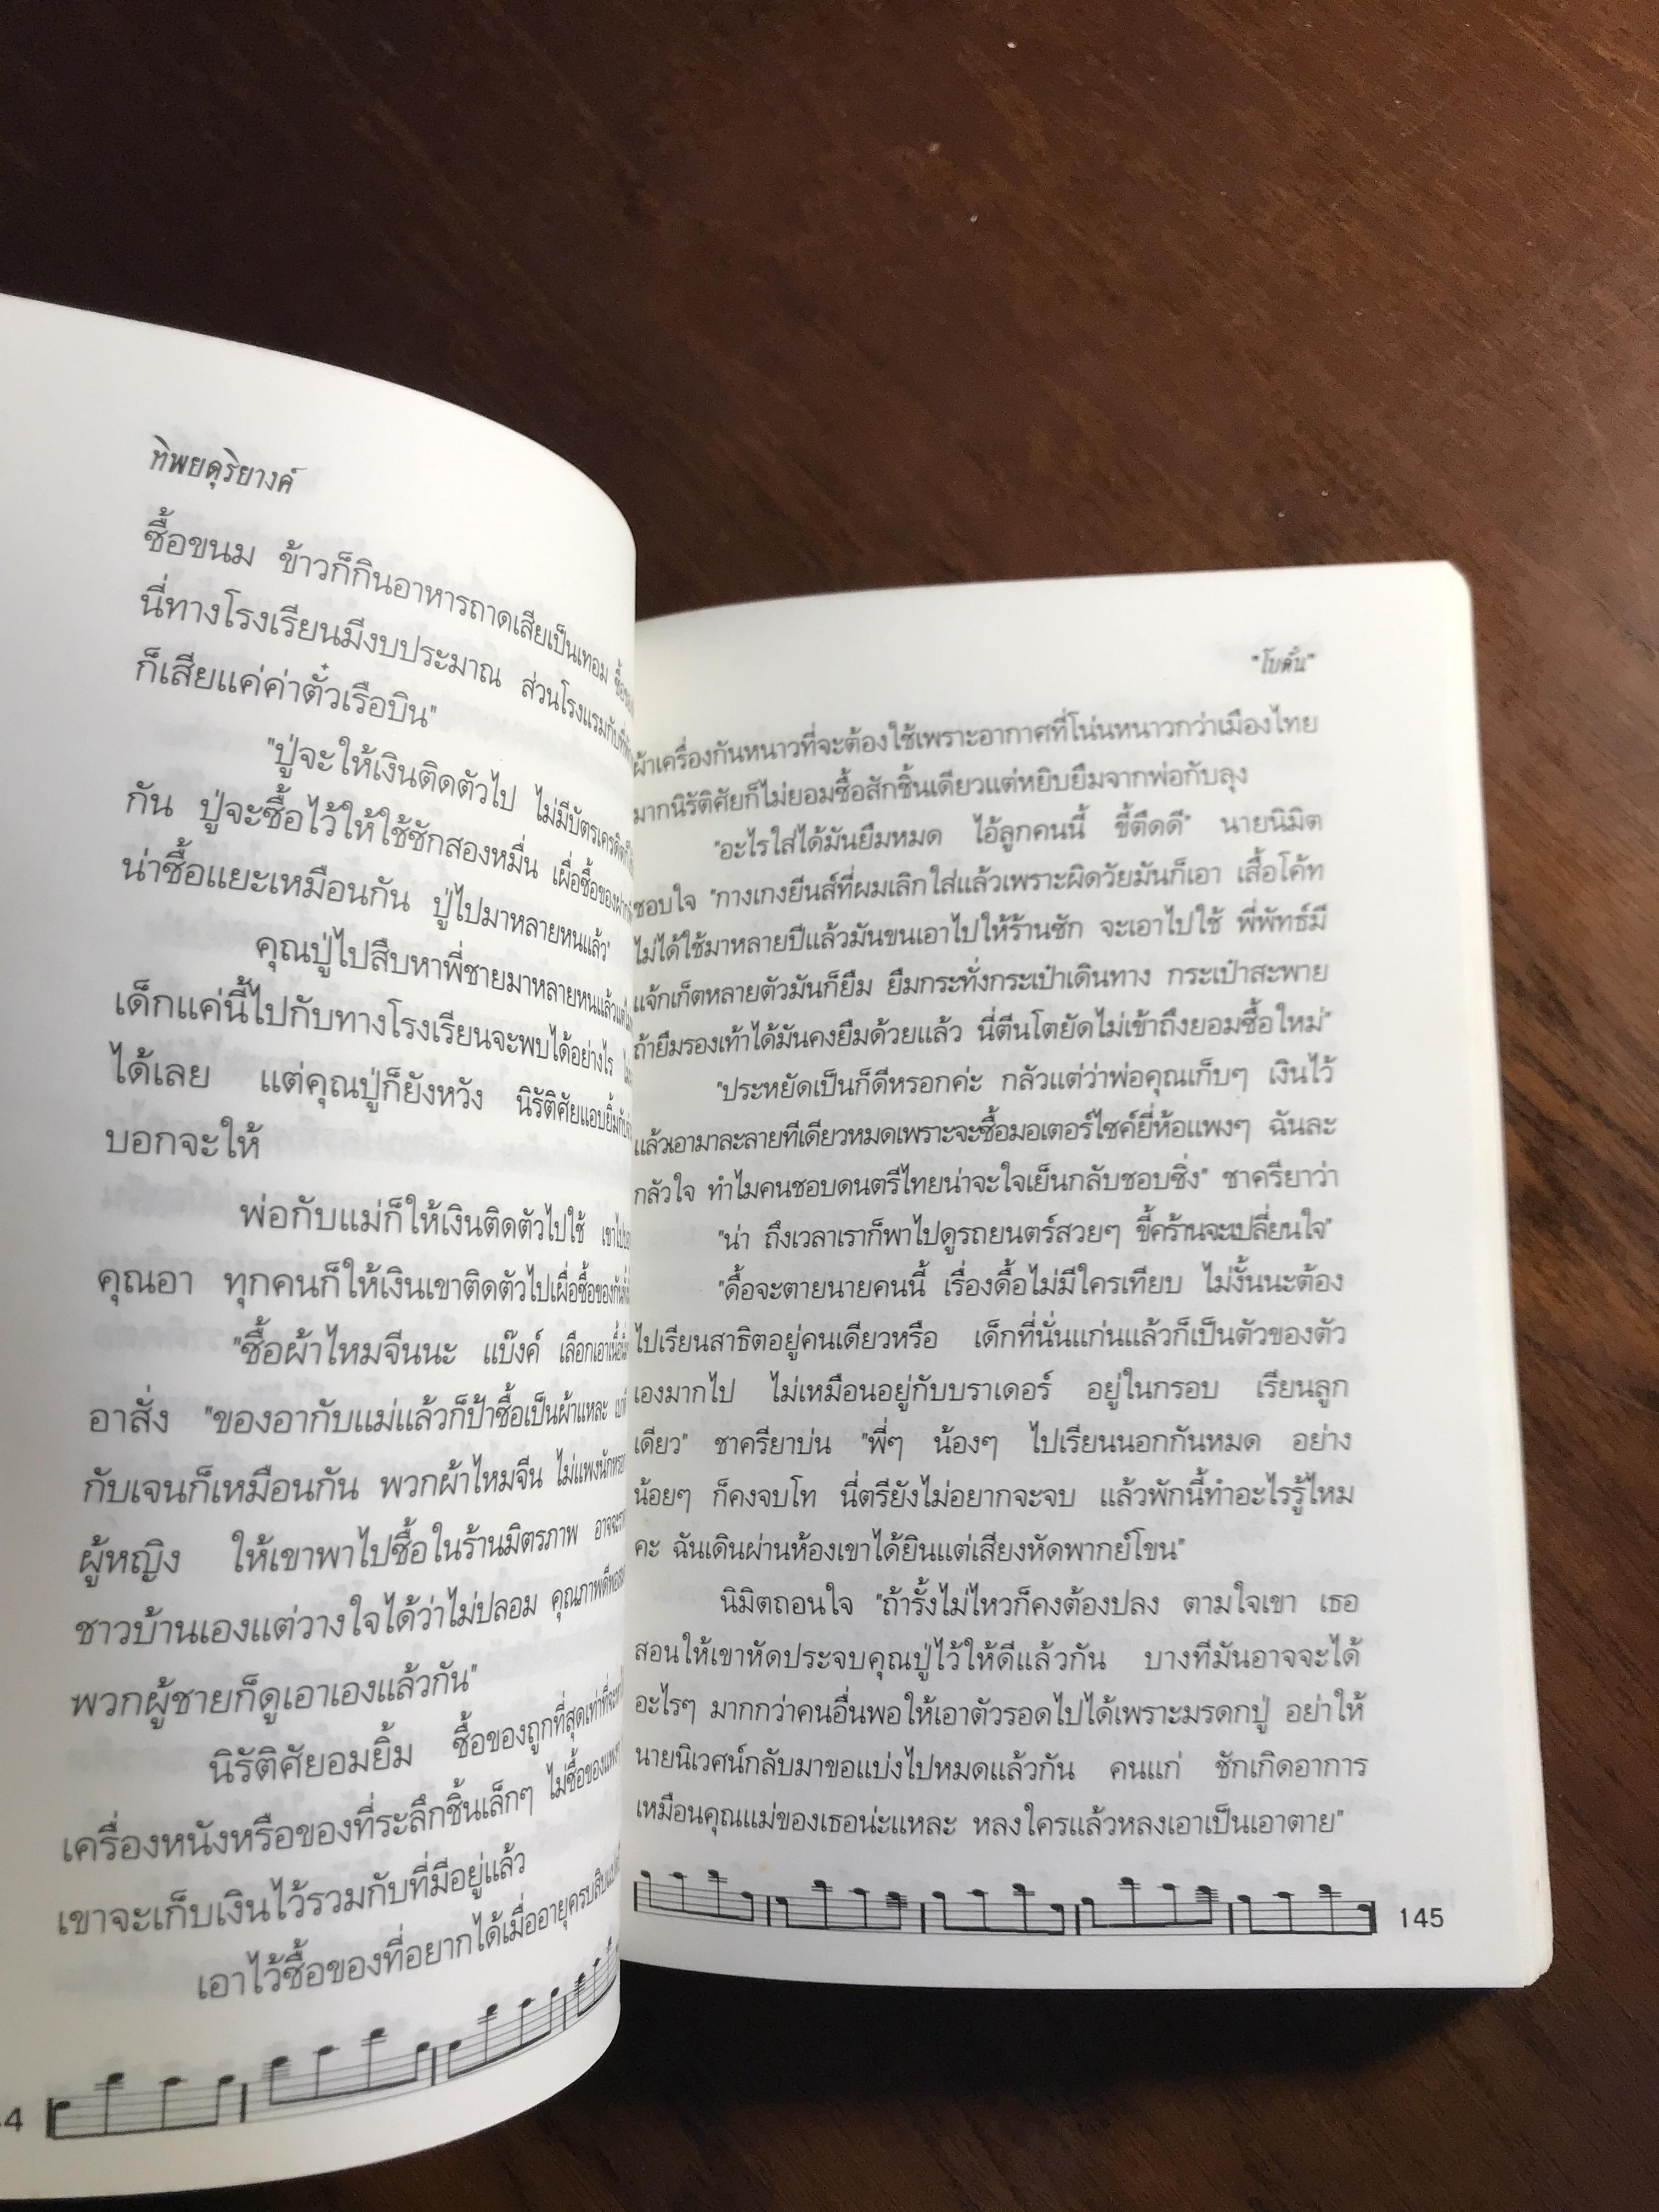 ทิพยดุริยางค์
ซื้อขนม ข้าวก็กินอาหารถาดเสียเป็นเทอม
นี่ทางโรงเรียนมีงบประมาณ ส่วนโรงแรมกับที่
ก็เสียแค่ค่าตั๋วเรือบิน"
"ปู่จะให้เงินติดตัวไป ไม่มีบัตรเครดิต
กัน ปู่จะซื้อไว้ให้ใช้ซักสองหมื่น เผื่อซื้อของ
น่าซื้อแยะเหมือนกัน ปู่ไปมาหลายหนแล้ว"
คุณปู่ไปสืบหาพี่ชายมาหลายหนแล้ว
เด็กแค่นี้ไปกับทางโรงเรียนจะพบได้อย่างไร
ได้เลย แต่คุณปู่ก็ยังหวัง นิรัติศัยแอบยิ้มกับ
บอกจะให้
พ่อกับแม่ก็ให้เงินติดตัวไปใช้
คุณอา ทุกคนก็ให้เงินเขาติดตัวไปเผื่อซื้อของ
"ซื้อผ้าไหมจีนนะ แบ๊งค์ เลือกเอาเนื้อ
อาสั่ง "ของอากับแม่แล้วก็ป้าซื้อเป็นผ้าแหละ
กับเจนก็เหมือนกัน พวกผ้าไหมจีน ไม่แพงนักหรอก
ผู้หญิง ให้เขาพาไปซื้อในร้านมิตรภาพ
ชาวบ้านเองแต่วางใจได้ว่าไม่ปลอม
พวกผู้ชายก็ดูเอาเองแล้วกัน"
นิรัติศัยอมยิ้ม ซื้อของถูกที่สุดเท่าที่จะ
เครื่องหนังหรือของที่ระลึกชิ้นเล็กๆ ไม่ซื้อของแพงๆ
เขาจะเก็บเงินไว้รวมกับที่มีอยู่แล้ว
เอาไว้ซื้อของที่อยากได้เมื่ออายุครบสิบแปด
"โบตั๋น"
ผ้าเครื่องกันหนาวที่จะต้องใช้เพราะอากาศที่โน่นหนาวกว่าเมืองไทย
มากนิรัติศัยก็ไม่ยอมซื้อสักชิ้นเดียวแต่หยิบยืมจากพ่อกับลุง
"อะไรใส่ได้มันยืมหมด ไอ้ลูกคนนี้ ขี้ตืดดี" นายนิมิต
ชอบใจ "กางเกงยีนส์ที่ผมเลิกใส่แล้วเพราะผิดวัยมันก็เอา เสื้อโค้ท
ไม่ได้ใช้มาหลายปีแล้วมันขนเอาไปให้ร้านซัก จะเอาไปใช้ พี่พัทธ์มี
แจ้กเก็ตหลายตัวมันก็ยืม ยืมกระทั่งกระเป๋าเดินทาง กระเป๋าสะพาย
ถ้ายืมรองเท้าได้มันคงยืมด้วยแล้ว นี่ตีนโตยัดไม่เข้าถึงยอมซื้อใหม่"
"ประหยัดเป็นก็ดีหรอกค่ะ กลัวแต่ว่าพ่อคุณเก็บๆ เงินไว้
แล้วเอามาละลายทีเดียวหมดเพราะจะซื้อมอเตอร์ไซค์ยี่ห้อแพงๆ ฉันละ
กลัวใจ ทำไมคนชอบดนตรีไทยน่าจะใจเย็นกลับชอบซิ่ง" ชาครียาว่า
"น่า ถึงเวลาเราก็พาไปดูรถยนตร์สวยๆ ขี้คร้านจะเปลี่ยนใจ"
"ดื้อจะตายนายคนนี้ เรื่องดื้อไม่มีใครเทียบ ไม่งั้นนะต้อง
ไปเรียนสาธิตอยู่คนเดียวหรือ เด็กที่นั่นแก่นแล้วก็เป็นตัวของตัว
เองมากไป ไม่เหมือนอยู่กับบราเดอร์ อยู่ในกรอบ เรียนลูก
เดียว" ชาครียาบ่น "พี่ๆ น้องๆ ไปเรียนนอกกันหมด อย่าง
น้อยๆ ก็คงจบโท นี่ตรียังไม่อยากจะจบ แล้วพักนี้ทำอะไรรู้ไหม
คะ ฉันเดินผ่านห้องเขาได้ยินแต่เสียงหัดพากย์โขน"
นิมิตถอนใจ "ถ้ารั้งไม่ไหวก็คงต้องปลง ตามใจเขา เธอ
สอนให้เขาหัดประจบคุณปู่ไว้ให้ดีแล้วกัน บางทีมันอาจจะได้
อะไรๆ มากกว่าคนอื่นพอให้เอาตัวรอดไปได้เพราะมรดกปู่ อย่าให้
นายนิเวศน์กลับมาขอแบ่งไปหมดแล้วกัน คนแก่ ชักเกิดอาการ
เหมือนคุณแม่ของเธอน่ะแหละ หลงใครแล้วหลงเอาเป็นเอาตาย"
145